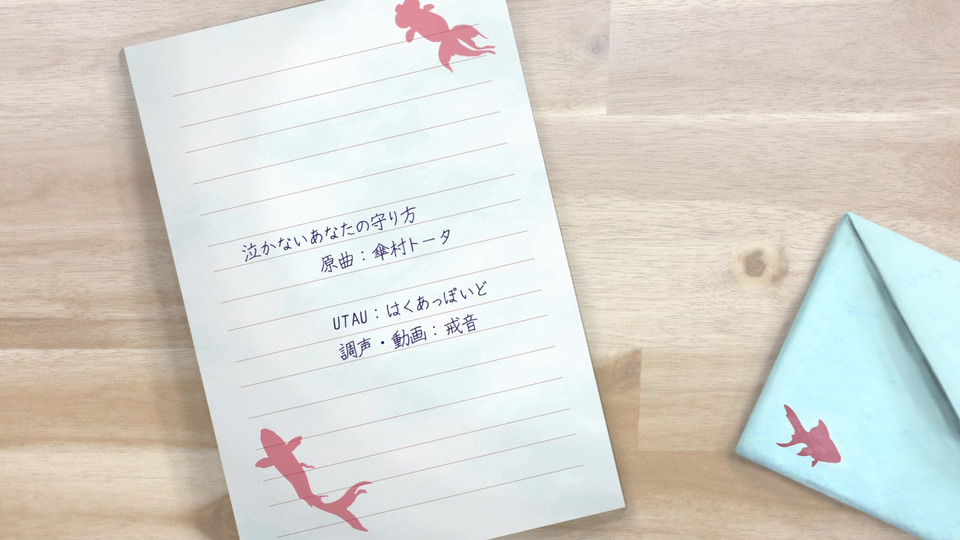 泣かないあなたの守り方
原曲：傘村トータ
UTAU：はくあっぽいど
調声・動画：戒音